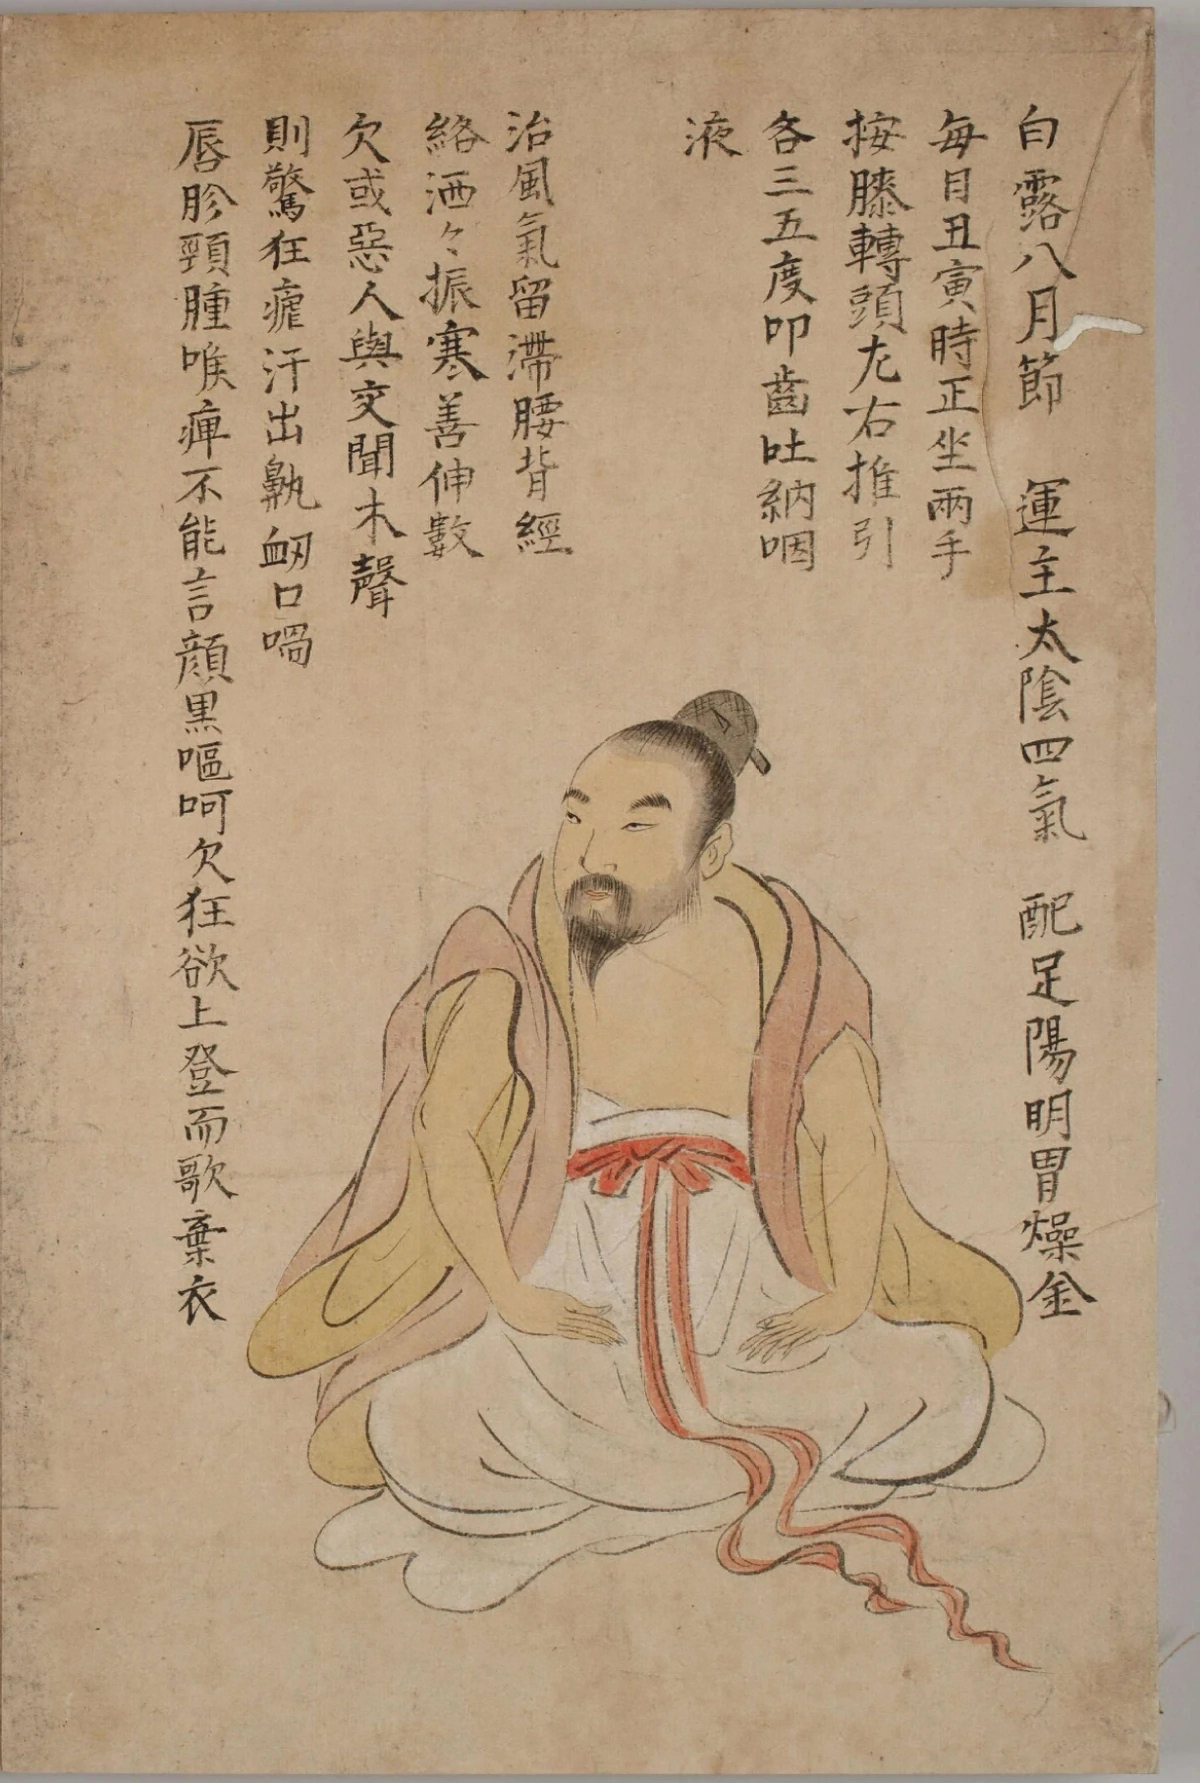 白露八月節　運主太陰四氣　配足陽明胃燥金
每日丑寅時正坐兩手
按膝轉頭左右推引
各三五度叩齒吐納咽
液
治風氣留滯腰背經
絡洒々振寒善伸數
欠或惡人與交聞木聲
則驚狂瘧汗出鼽衂口喎
唇胗頸腫喉痺不能言顏黒嘔呵欠狂欲上登而歌棄衣